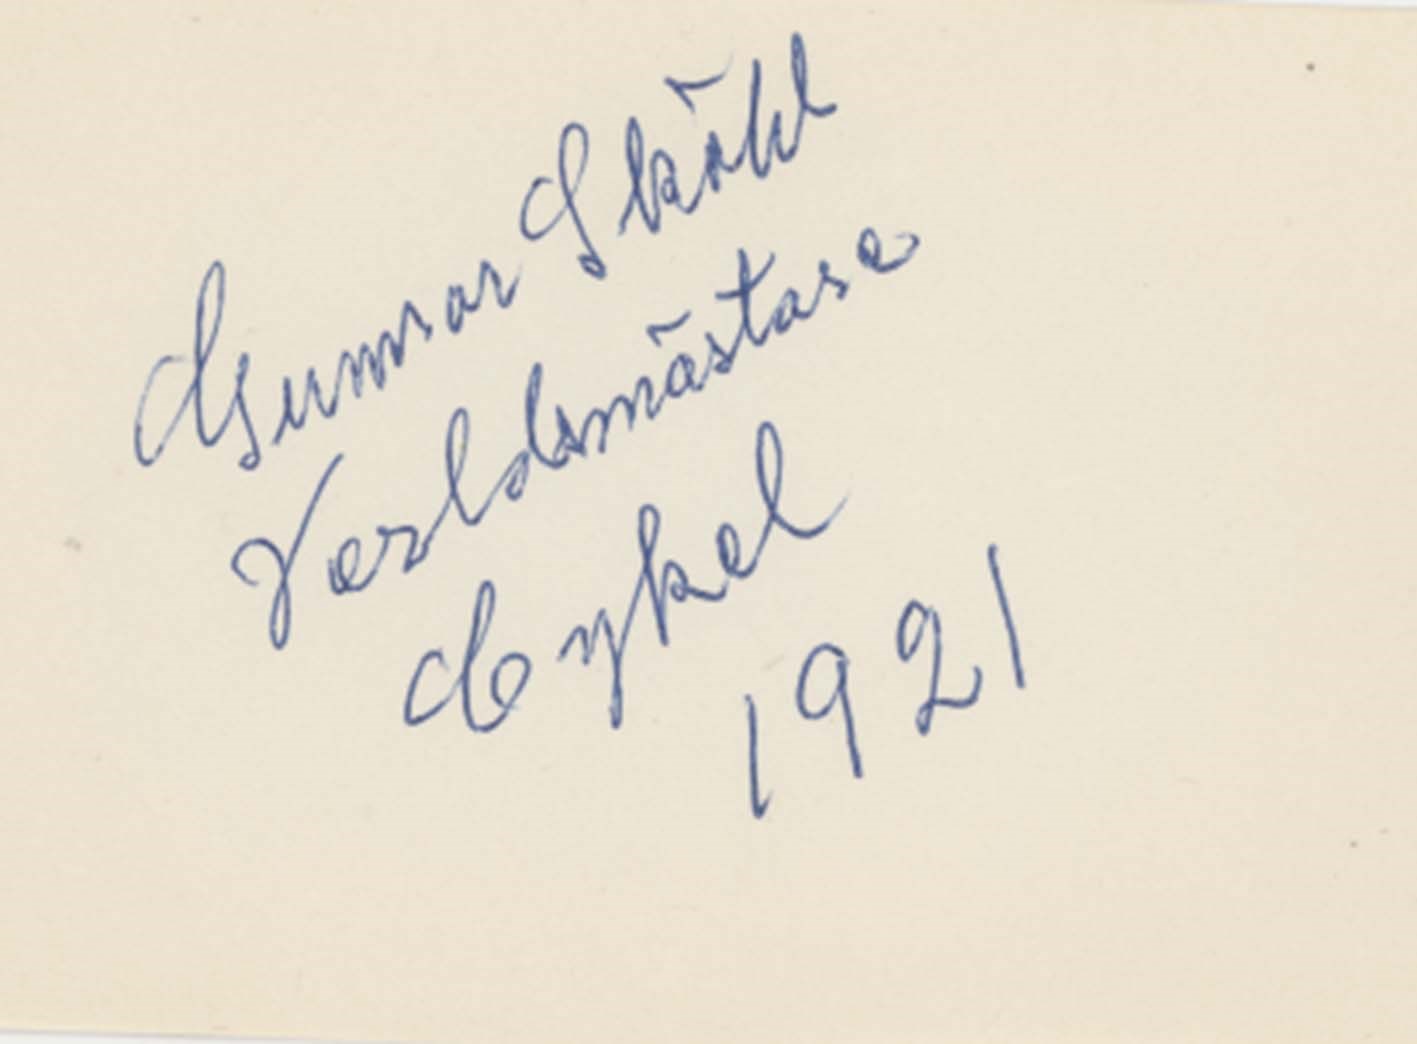 Gunnar Sköld
Verldsmästare
Cykel
1921